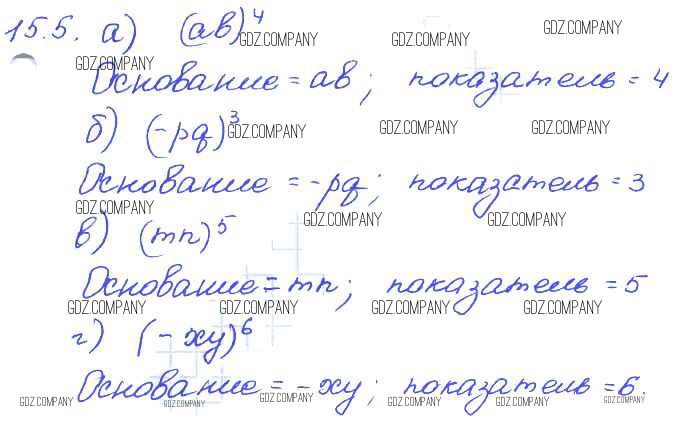 15.5. а) (ab)⁴ GDZ.COMPANY GDZ.COMPANY GDZ.COMPANY
GDZ.COMPANY
Основание = ab; показатель = 4
б) (-pq)³ GDZ.COMPANY GDZ.COMPANY GDZ.COMPANY
Основание = -pq; показатель = 3
GDZ.COMPANY GDZ.COMPANY GDZ.COMPANY
в) (mn)⁵
Основание = mn; показатель = 5
GDZ.COMPANY GDZ.COMPANY GDZ.COMPANY GDZ.COMPANY
г) (-xy)⁶
Основание = -xy; показатель = 6.
GDZ.COMPANY GDZ.COMPANY GDZ.COMPANY GDZ.COMPANY GDZ.COMPANY